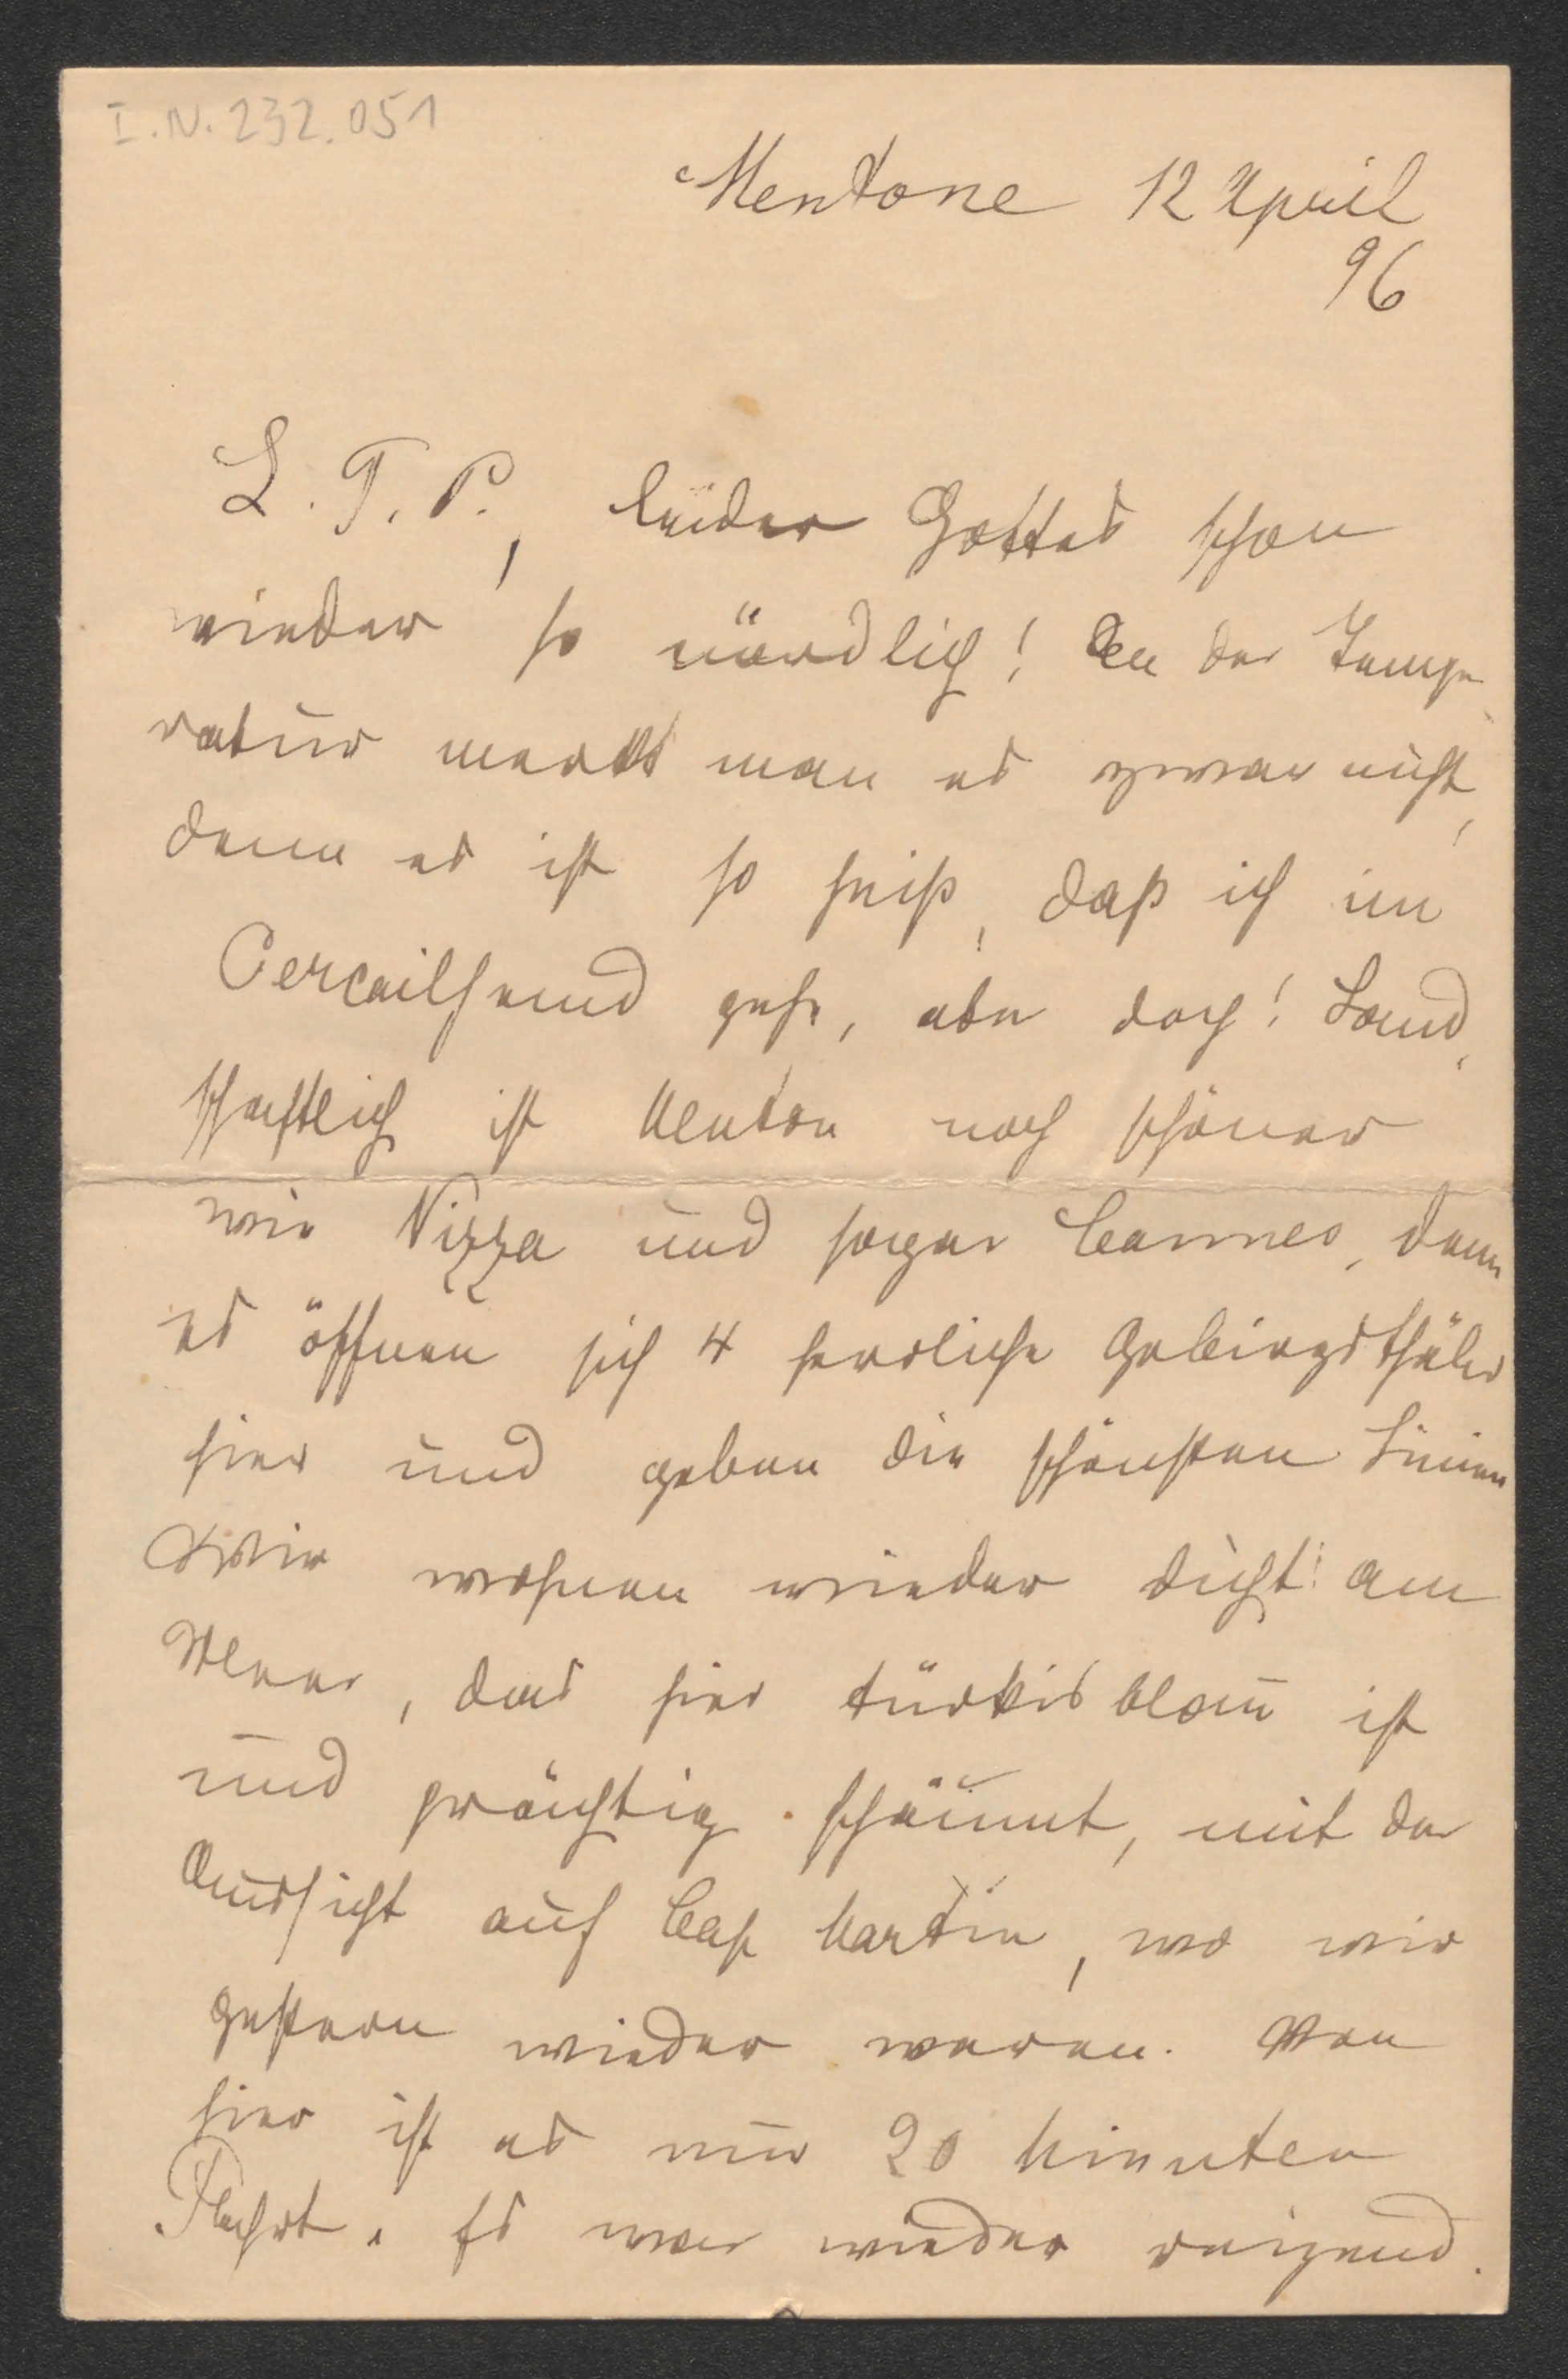 I.N. 232.051
Mentone 12 April
96
L. T. P., leider Gottes schon
wieder so nördlich! An der Tempe
ratur merkt man es zwar nicht,
denn es ist so heiß, daß ich im
Percailhemd gehe, aber doch! Land
schaftlich ist Menton noch schöner
wie Nizza und sogar Cannes, denn
es öffnen sich 4 herrliche Gebirgsthäler
hier und geben die schönsten Linien
Wir wohnen wieder dicht am
Meer, das hier türkisblau ist
und prächtig schäumt, mit der
Aussicht auf Cap Martin, wo wir
gestern wieder waren. Von
hier ist es nur 20 Minuten
Fahrt. Es war wieder reizend.